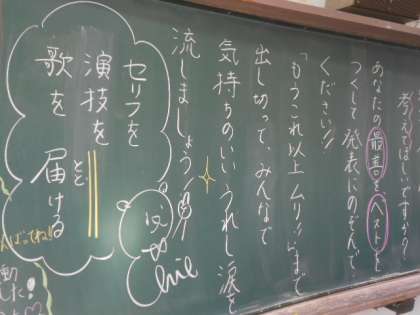 考えて
あなたの最高を ベストを
つくして発表にのぞんで
ください!!
「もうこれ以上ムリ!!」まで
出し切って、みんなで
気持ちのいいうれし涙を
流しましょう!!
セリフを
演技を
歌を 届ける
とど
ばってね!
動
した!